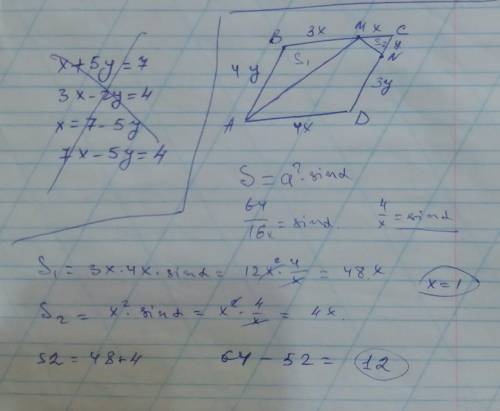 x + 5y = 7
3x - 2y = 4
x = 7 - 5y
7x - 5y = 4
B 3x M x C
S1 S2 y
4y N
3y
A 4x D
S = a² · sinα
64/16x = sinα 4/x = sinα
S1 = 3x · 4x · sinα = 12x² · 4/x = 48 x x = 1
S2 = x² · sinα = x² · 4/x = 4x.
52 = 48 + 4 64 - 52 = 12